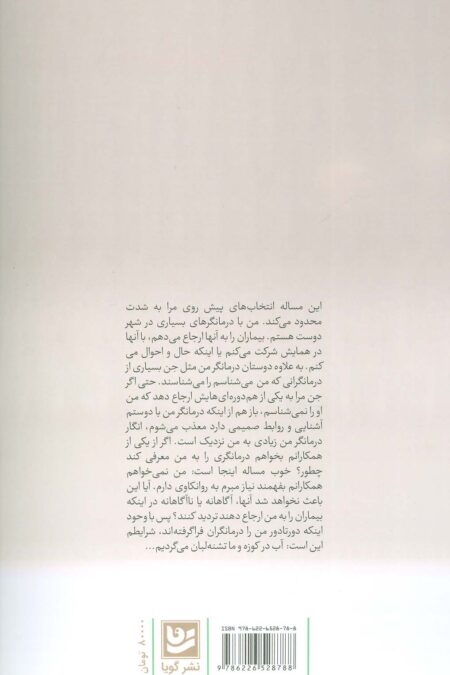 این مساله انتخاب‌های پیش روی مرا به شدت
محدود می‌کند. من با درمانگرهای بسیاری در شهر
دوست هستم. بیماران را به آنها ارجاع می‌دهم، با آنها
در همایش شرکت می‌کنم یا اینکه حال و احوال می
کنم. به علاوه دوستان درمانگر من مثل جن بسیاری از
درمانگرانی که من می‌شناسم را می‌شناسند. حتی اگر
جن مرا به یکی از هم‌دوره‌ای‌هایش ارجاع دهد که من
او را نمی‌شناسم، باز هم از اینکه درمانگر من با دوستم
آشنایی و روابط صمیمی دارد معذب می‌شوم، انگار
درمانگر من زیادی به من نزدیک است. اگر از یکی از
همکارانم بخواهم درمانگری را به من معرفی کند
چطور؟ خوب مساله اینجا است: من نمی‌خواهم
همکارانم بفهمند نیاز مبرم به روانکاوی دارم. آیا این
باعث نخواهد شد آنها، آگاهانه یا ناآگاهانه در اینکه
بیماران را به من ارجاع دهند تردید کنند؟ پس با وجود
اینکه دورتادور من را درمانگران فراگرفته‌اند، شرایطم
این است: آب در کوزه و ما تشنه‌لبان می‌گردیم...
ISBN 978-622-6528-78-8
9 786226 528788
نشر گویا
۸۰۰۰۰ تومان